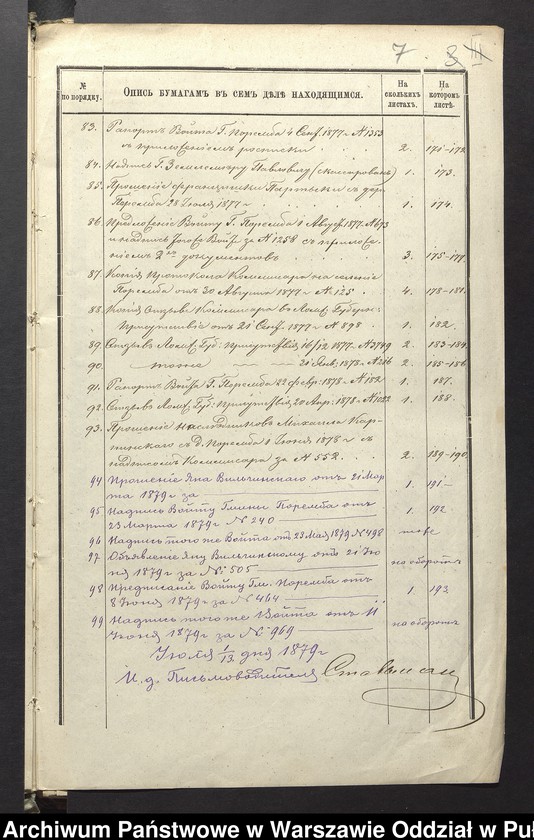 7. 8 III
№ по порядку. Опись бумагамъ въ семъ дѣлѣ находящимся. На сколькихъ листахъ. На которомъ листѣ.
83. Рапортъ Войта Г. Поремба 4 Сент. 1877 г. № 1353
съ приложеніемъ росписки 2. 171-172
84. Надпись Г. Землемѣру Павловичу 1. 173.
85. Прошеніе Францишки съ дер.
Поремба 28 Іюля 1877 г. 1. 174.
86. Предложеніе Войту Г. Поремба 1 Август. 1877 № 673
и надпись того Войта за № 1258 съ приложе-
ніемъ 2хъ документовъ 3. 175-177.
87. Копія Протокола Коммиссара на имѣніе
Поремба отъ 30 Августа 1877 г. № 125 4. 178-181.
88. Копія Отзыва Коммисара въ Ломж. Губерн:
Присутствіе отъ 21 Сент. 1877 г. № 898 1. 182.
89. Отзывъ Ломж. Губ: Присутствія 16/12 1877. № 3749 2. 183-184.
90. тоже 21 Янв. 1878 г. № 216 2. 185-186
91. Рапортъ Войта Г. Поремба 22 февр. 1878 г. № 182 1. 187.
92. Отзывъ Ломж. Губ: Присутствія 20 Апр. 1878 г. № 1022 1. 188.
93. Прошеніе наслѣдниковъ Михаила
съ д. Поремба 1 Іюня 1878 г. съ
надписью Коммисара за № 552. 2. 189-190.
94 Прошеніе Яна Вильчинскаго отъ 21 Мар-
та 1879 г за 1. 191.-
95 Надпись Войту Гмины Поремба отъ
23 Марта 1879 г № 240 1. 192.
96 Надпись того же Войта отъ 23 Мая 1879 № 498 тоже
97 Объявленіе Яну Вильчинскому отъ 21 Ію-
ня 1879 г за № 505 на оборотѣ
98 Предписаніе Войту Гм. Поремба отъ
8 Іюня 1879 г за № 464 1. 193.
99 Надпись того же Войта отъ 11
Іюня 1879 г за № 969 на оборотѣ
Іюля 1/13 дня 1879 г
И. д. Письмоводителя
Archiwum Państwowe w Warszawie Oddział w Puł